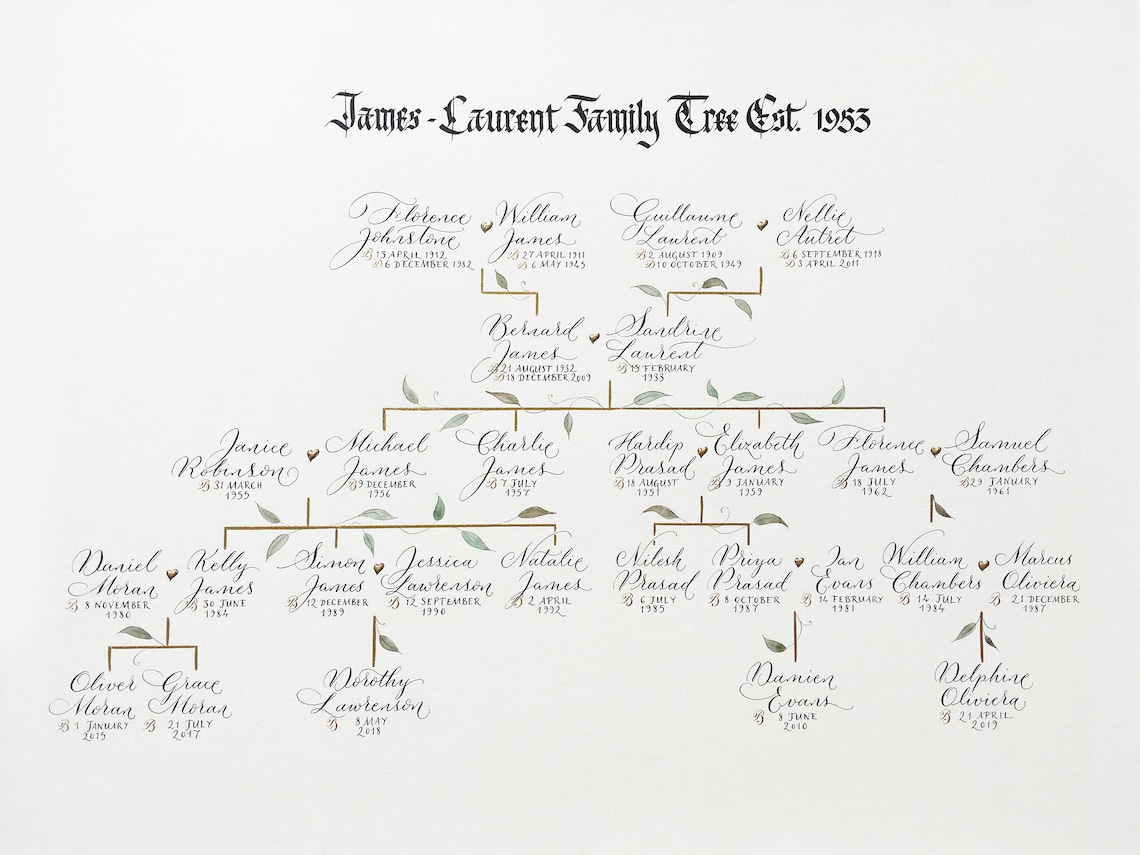 James - Laurent Family Tree Est. 1953
Florence Johnstone
B 13 APRIL 1912
D 6 DECEMBER 1982
William James
B 27 APRIL 1911
D 6 MAY 1945
Guillaume Laurent
B 2 AUGUST 1909
D 10 OCTOBER 1949
Nellie Autret
B 6 SEPTEMBER 1918
D 3 APRIL 2011
Bernard James
B 21 AUGUST 1932
D 18 DECEMBER 2009
Sandrine Laurent
B 15 FEBRUARY
1933
Janice Robinson
B 31 MARCH
1955
Michael James
B 9 DECEMBER
1956
Charlie James
B 7 JULY
1957
Hardip Prasad
B 18 AUGUST
1951
Elizabeth James
B 9 JANUARY
1959
Florence James
B 18 JULY
1962
Samuel Chambers
B 29 JANUARY
1961
Daniel Moran
B 8 NOVEMBER
1980
Kelly James
B 30 JUNE
1984
Simon James
B 12 DECEMBER
1989
Jessica Lawrenson
B 12 SEPTEMBER
1990
Natalie James
B 2 APRIL
1992
Nilesh Prasad
B 6 JULY
1985
Priya Prasad
B 8 OCTOBER
1987
Ian Evans
B 14 FEBRUARY
1981
William Chambers
B 14 JULY
1984
Marcus Oliviera
B 21 DECEMBER
1987
Oliver Moran
B 1 JANUARY
2015
Grace Moran
B 21 JULY
2017
Dorothy Lawrenson
B 8 MAY
2018
Damien Evans
B 8 JUNE
2010
Delphine Oliviera
B 21 APRIL
2019